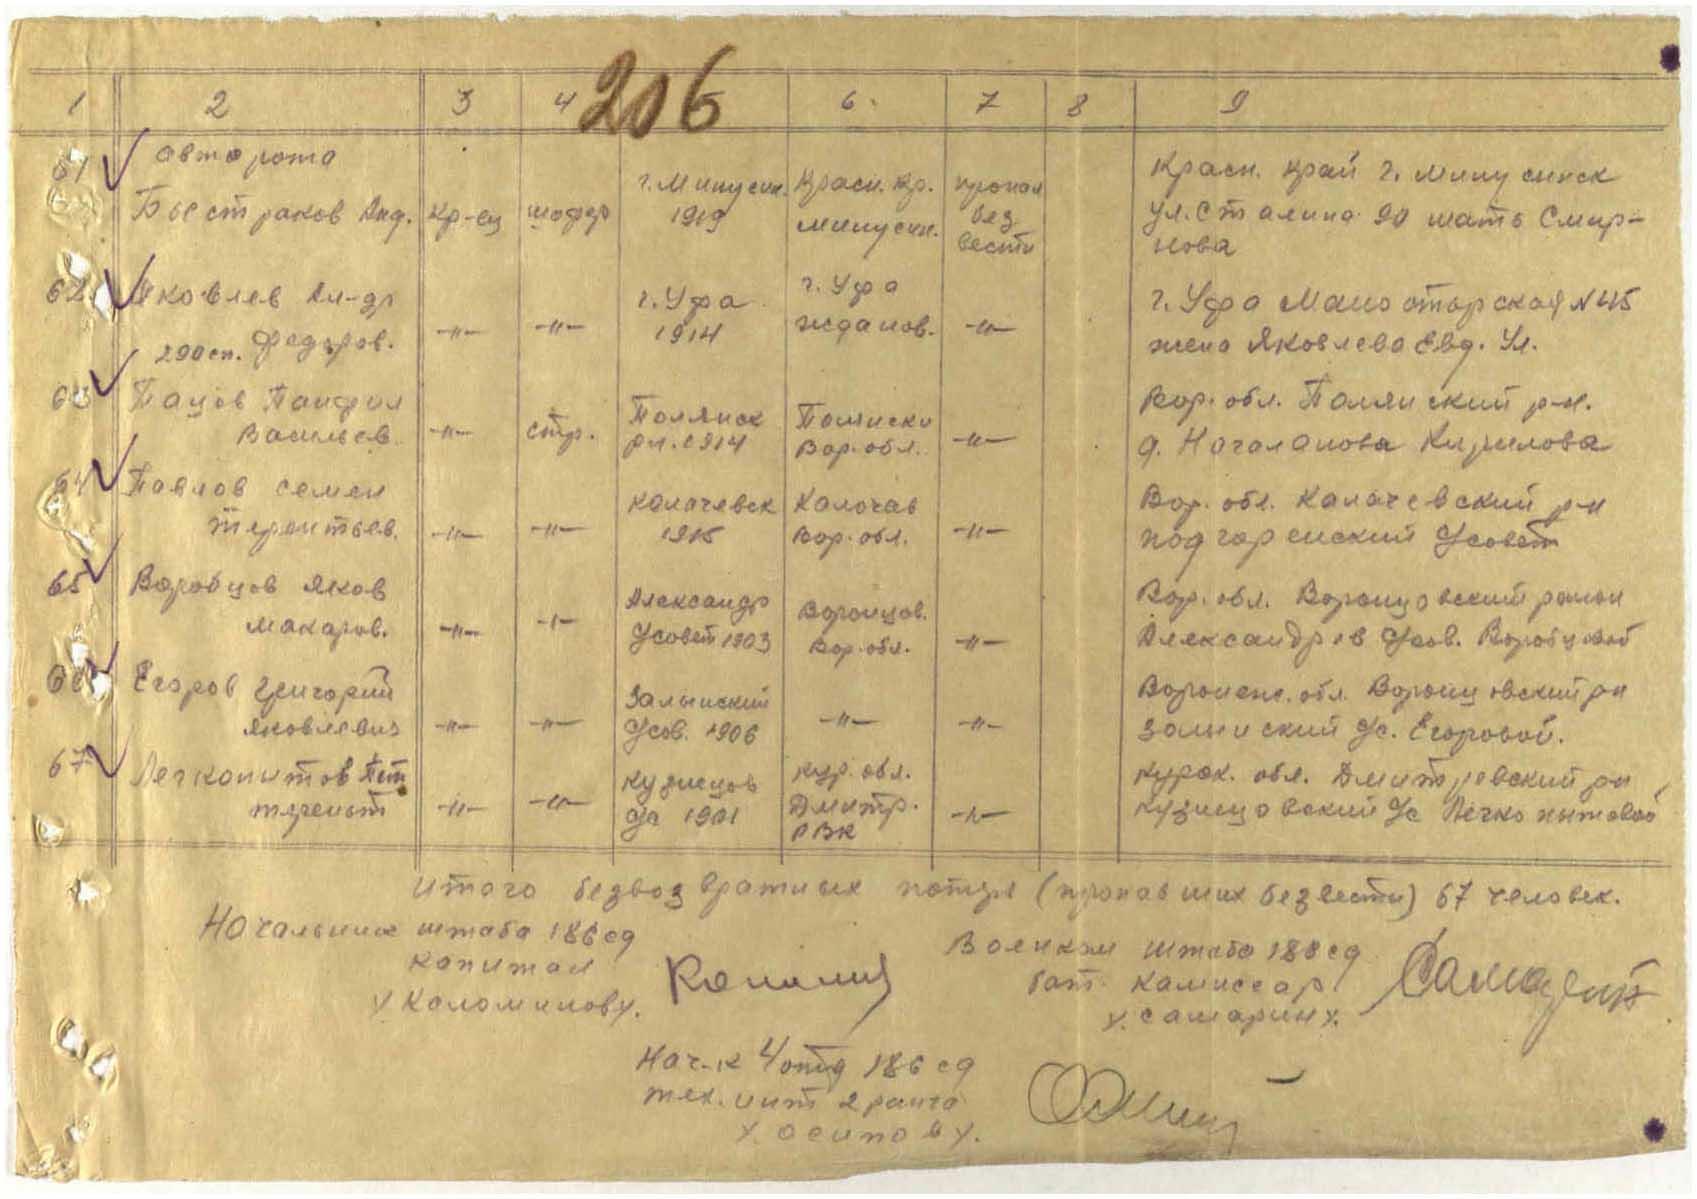 206
1 2 3 4 6. 7 8 9
61 авторота
Быстраков Анд. Кр-ец шофер г. Минусин. 1919 Красн. Кр. Минусин. пропал без вести
Красн. край г. Минусинск
ул. Сталина 90 мать Смир-
нова
62 Яковлев Ал-др
Федоров. -"- -"- г. Уфа 1914 г. Уфа жданов. -"-
г. Уфа №45
жена Яковлева Евд. Ул.
290 сп.
63 Пацов Панфил
Васильев. -"- стр. Полянск рн. 1914 Вор. обл. -"-
Вор. обл. р-н.
д. Кирилова
64 Павлов Семен
Терентьев. -"- -"- Калачевск 1915 Калачев Вор. обл. -"-
Вор. обл. Калачевский р-н
подгоренский Усовет
65 Воробцов Яков
Макаров. -"- -"- Александр Усовет 1903 Воронцов. Вор. обл. -"-
Вор. обл. Воронцовский район
Александров Усов. Воробцовой
66 Егоров Григорий
Яковлевич -"- -"- Усов. 1906 -"- -"-
Воронеж. обл. Воронцовский рн
Ус. Егоровой.
67 Легкопытов Пет
терент -"- -"- Кузнецов Ус 1901 Кур. обл. Дмитр. РВК -"-
Курск. обл. Дмитревский рн
Кузнецовский Ус Легкопытовой
Итого безвозвратных потерь (пропавших без вести) 67 человек.
Начальник штаба 186 сд
капитан
/Коломинов/.
Военком штаба 186 сд
бат. комиссар
/Самарин/.
Нач-к 4 отд 186 сд
тех. инт 2 ранга
/Осипов/.